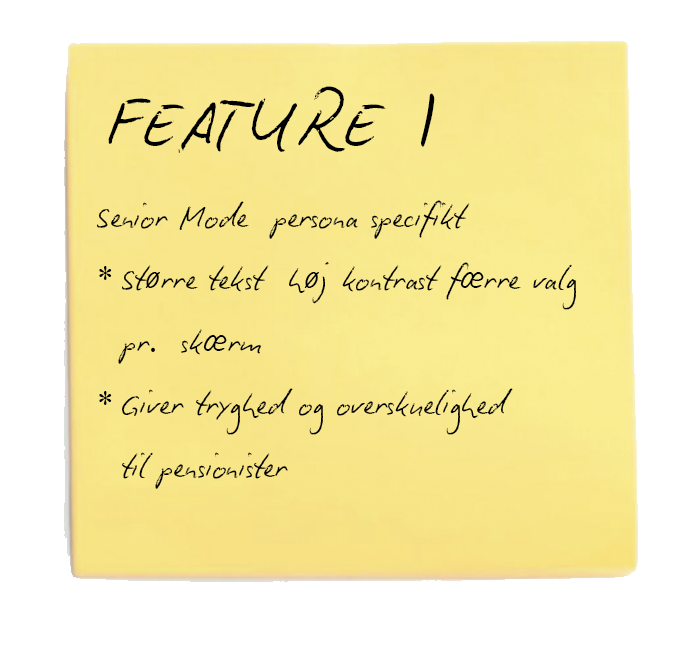 FEATURE 1
Senior Mode persona specifikt
* Større tekst høj kontrast færre valg
pr. skærm
* Giver tryghed og overskuelighed
til pensionister